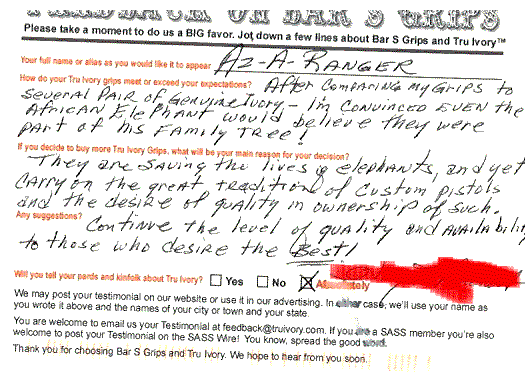 FEEDBACK ON BAR S GRIPS
Please take a moment to do us a BIG favor. Jot down a few lines about Bar S Grips and Tru Ivory™
Your full name or alias as you would like it to appear AZ-A-RANGER
How do your Tru Ivory grips meet or exceed your expectations? After Comparing My Grips to
several pair of genuine Ivory – I'm convinced even the
African Elephant would believe they were
part of his Family Tree!
If you decide to buy more Tru Ivory Grips, what will be your main reason for your decision?
They are saving the lives of elephants, and yet
carry on the great tradition of custom pistols
and the desire of quality in ownership of such.
Any suggestions? Continue the level of quality and availability
to those who desire the Best!
Will you tell your pards and kinfolk about Tru Ivory? Yes No Absolutely
We may post your testimonial on our website or use it in our advertising. In either case, we'll use your name as
you wrote it above and the names of your city or town and your state.
You are welcome to email us your Testimonial at feedback@truivory.com. If you are a SASS member you're also
welcome to post your Testimonial on the SASS Wire! You know, spread the good word.
Thank you for choosing Bar S Grips and Tru Ivory. We hope to hear from you soon.